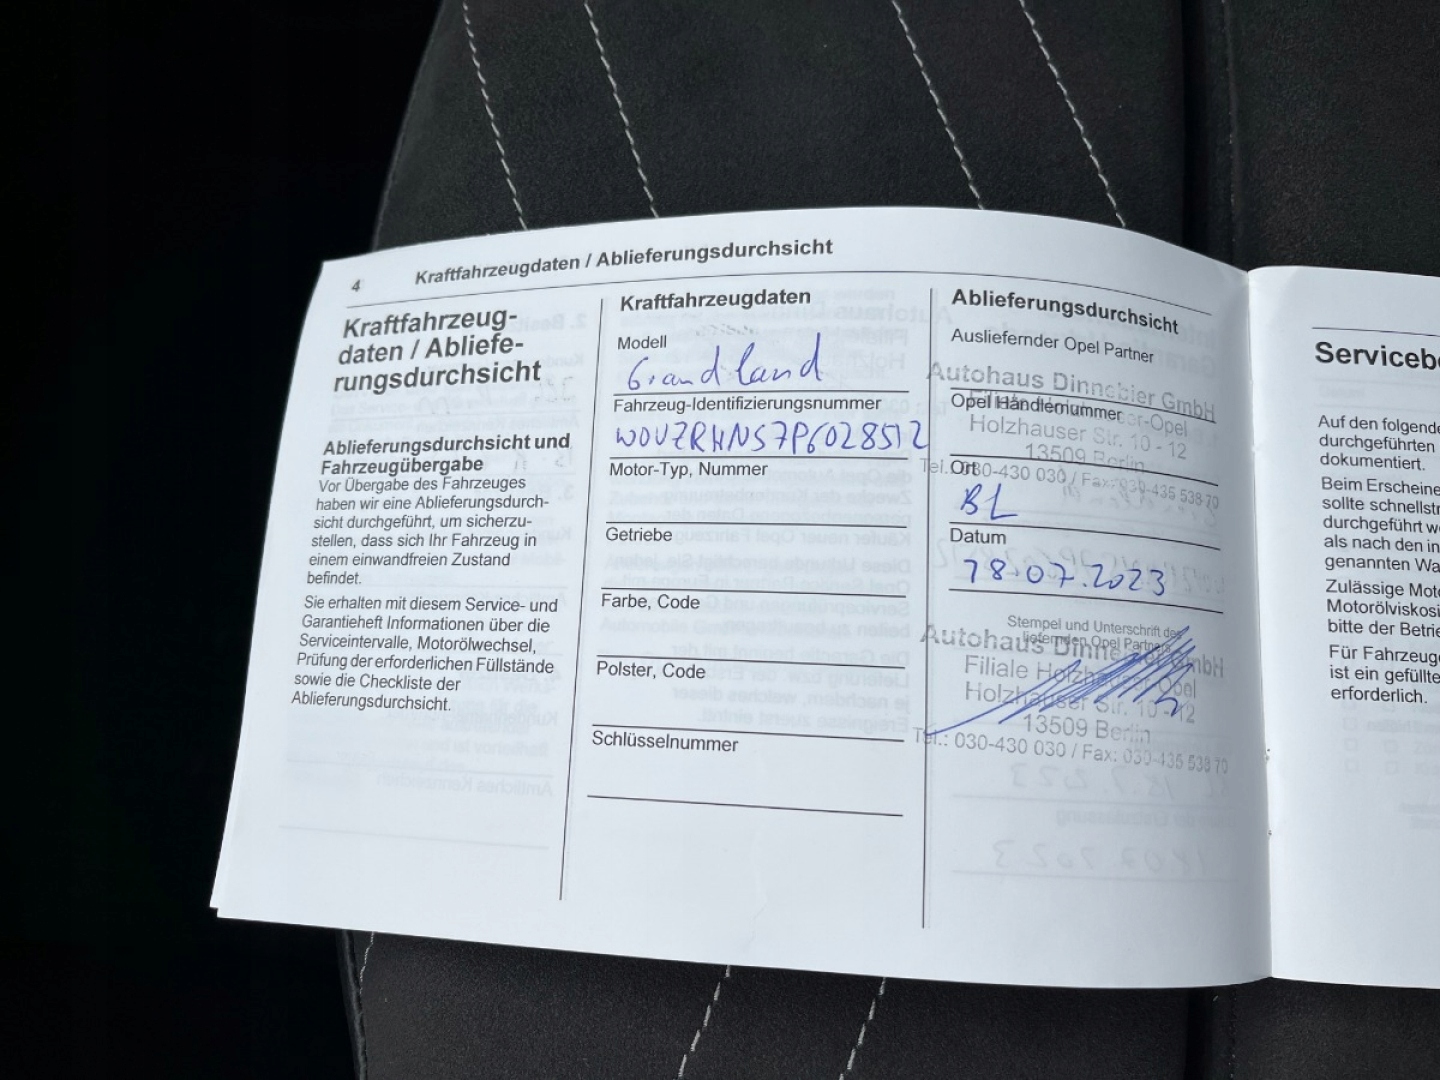 4 Kraftfahrzeugdaten / Ablieferungsdurchsicht
Kraftfahrzeug-
daten / Abliefe-
rungsdurchsicht
Ablieferungsdurchsicht und
Fahrzeugübergabe
Vor Übergabe des Fahrzeuges
haben wir eine Ablieferungsdurch-
sicht durchgeführt, um sicherzu-
stellen, dass sich Ihr Fahrzeug in
einem einwandfreien Zustand
befindet.
Sie erhalten mit diesem Service- und
Garantieheft Informationen über die
Serviceintervalle, Motorölwechsel,
Prüfung der erforderlichen Füllstände
sowie die Checkliste der
Ablieferungsdurchsicht.
Kraftfahrzeugdaten
Modell
Grandland
Fahrzeug-Identifizierungsnummer
W0VZRHNS7P6028512
Motor-Typ, Nummer
Getriebe
Farbe, Code
Polster, Code
Schlüsselnummer
Ablieferungsdurchsicht
Ausliefernder Opel Partner
Autohaus Dinnebier GmbH
Opel Händlernummer
Holzhauser Str. 10 - 12
13509 Berlin
Tel.: 030-430 030 / Fax: 030-435 538 70
Ort
BL
Datum
18.07.2023
Stempel und Unterschrift des
liefernden Opel Partners
Autohaus Dinnebier GmbH
Filiale Holzhauser-Opel
Holzhauser Str. 10 - 12
13509 Berlin
Tel.: 030-430 030 / Fax: 030-435 538 70
Auf den folgende
durchgeführten
dokumentiert.
Beim Erscheine
sollte schnellst
durchgeführt w
als nach den in
genannten Wa
Zulässige Mot
Motorölviskosi
bitte der Betrie
Für Fahrzeug
ist ein gefüllte
erforderlich.